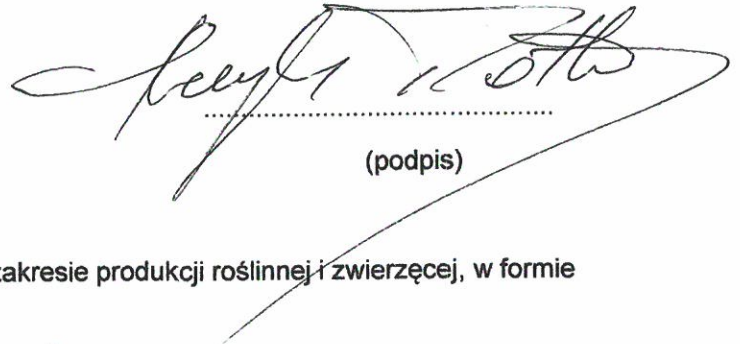 (podpis)
zakresie produkcji roślinnej i zwierzęcej, w formie